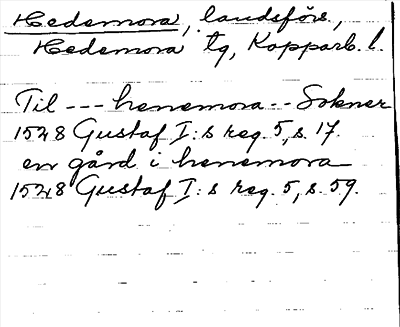 Hedemora, landsförs.,
Hedemora tg, Kopparb. l.
Til --- henemora -- Sokner
1528 Gustaf I:s reg. 5, s. 17.
en gård i henemora
1528 Gustaf I:s reg. 5, s. 59.